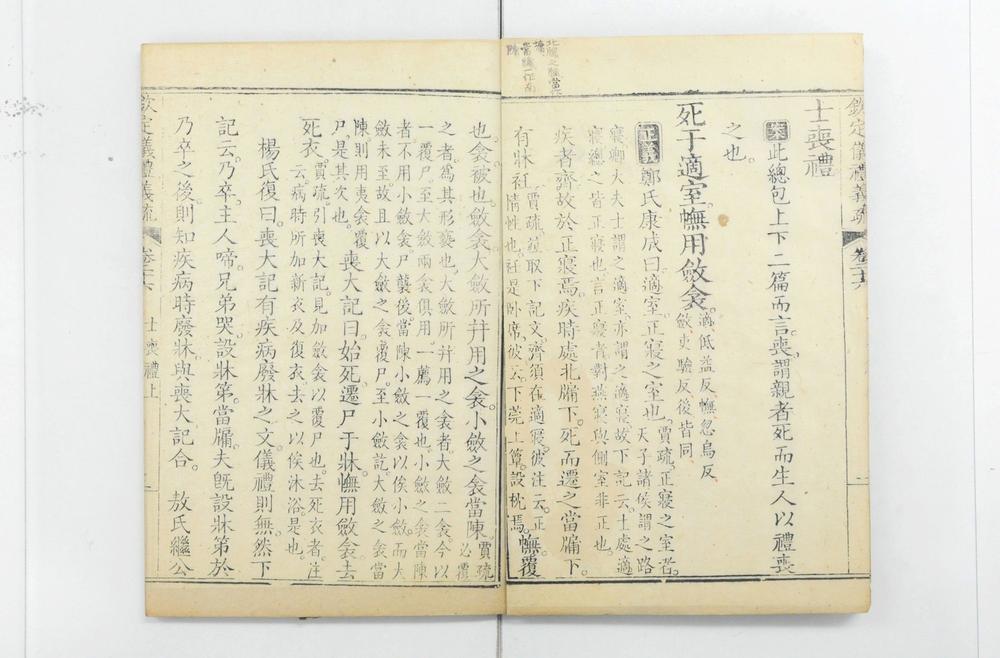 欽定儀禮義疏 卷二十六
士喪禮
案此總包上下二篇而言喪。謂親者死而生人以禮喪
之也。
死于適室。幠用斂衾。
適低益反幠忽烏反
斂吏驗反後皆同
正義鄭氏康成曰。適室。正寢之室也。
賈疏。正寢之室者。
天子諸侯謂之路
寢卿大夫士謂之適室。亦謂之適寢。故下記云。士處適
寢總之皆正寢也。言正寢者對燕寢與側室非正也。
疾者齊故於正寢焉。疾時處北牖下。死而遷之當牖下。
有牀衽。
賈疏並取下記文。齊須在適寢。彼注云。正
情性也。衽是卧席。彼云。下莞上簟。設枕焉。
幠覆
也。衾被也。斂衾。大斂所幷用之衾。小斂之衾當陳。
賈疏
必覆
之者。爲其形褻也。大斂所幷用之衾者。大斂二衾。今以
一覆尸。至大斂兩衾俱用。一薦一覆也。小斂之衾當陳
者。不用小斂衾。尸襲後。當陳小斂之衾以俟小斂。而大
斂未至。故且以大斂之衾覆尸。至小斂訖。大斂之衾當
陳則用夷衾覆
尸。是其次也。
喪大記曰。始死。遷尸于牀。幠用斂衾。去
死衣。
賈疏。引喪大記。見加斂衾以覆尸也。去死衣者。注
云病時所加新衣及復衣。去之以俟沐浴。是也。
楊氏復曰。喪大記有疾病廢牀之文。儀禮則無。然下
記云。乃卒。主人啼。兄弟哭。設牀笫。當牖。夫旣設牀笫於
乃卒之後。則知疾病時廢牀。與喪大記合。 敖氏繼公
欽定儀禮義疏 卷二十六 士喪禮上 一